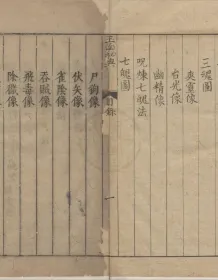 三魂圖
爽靈像
台光像
幽精像
呪煉七魄法
七魄圖
目錄
一
尸狗像
伏矢像
雀陰像
吞賊像
飛毒像
除穢像